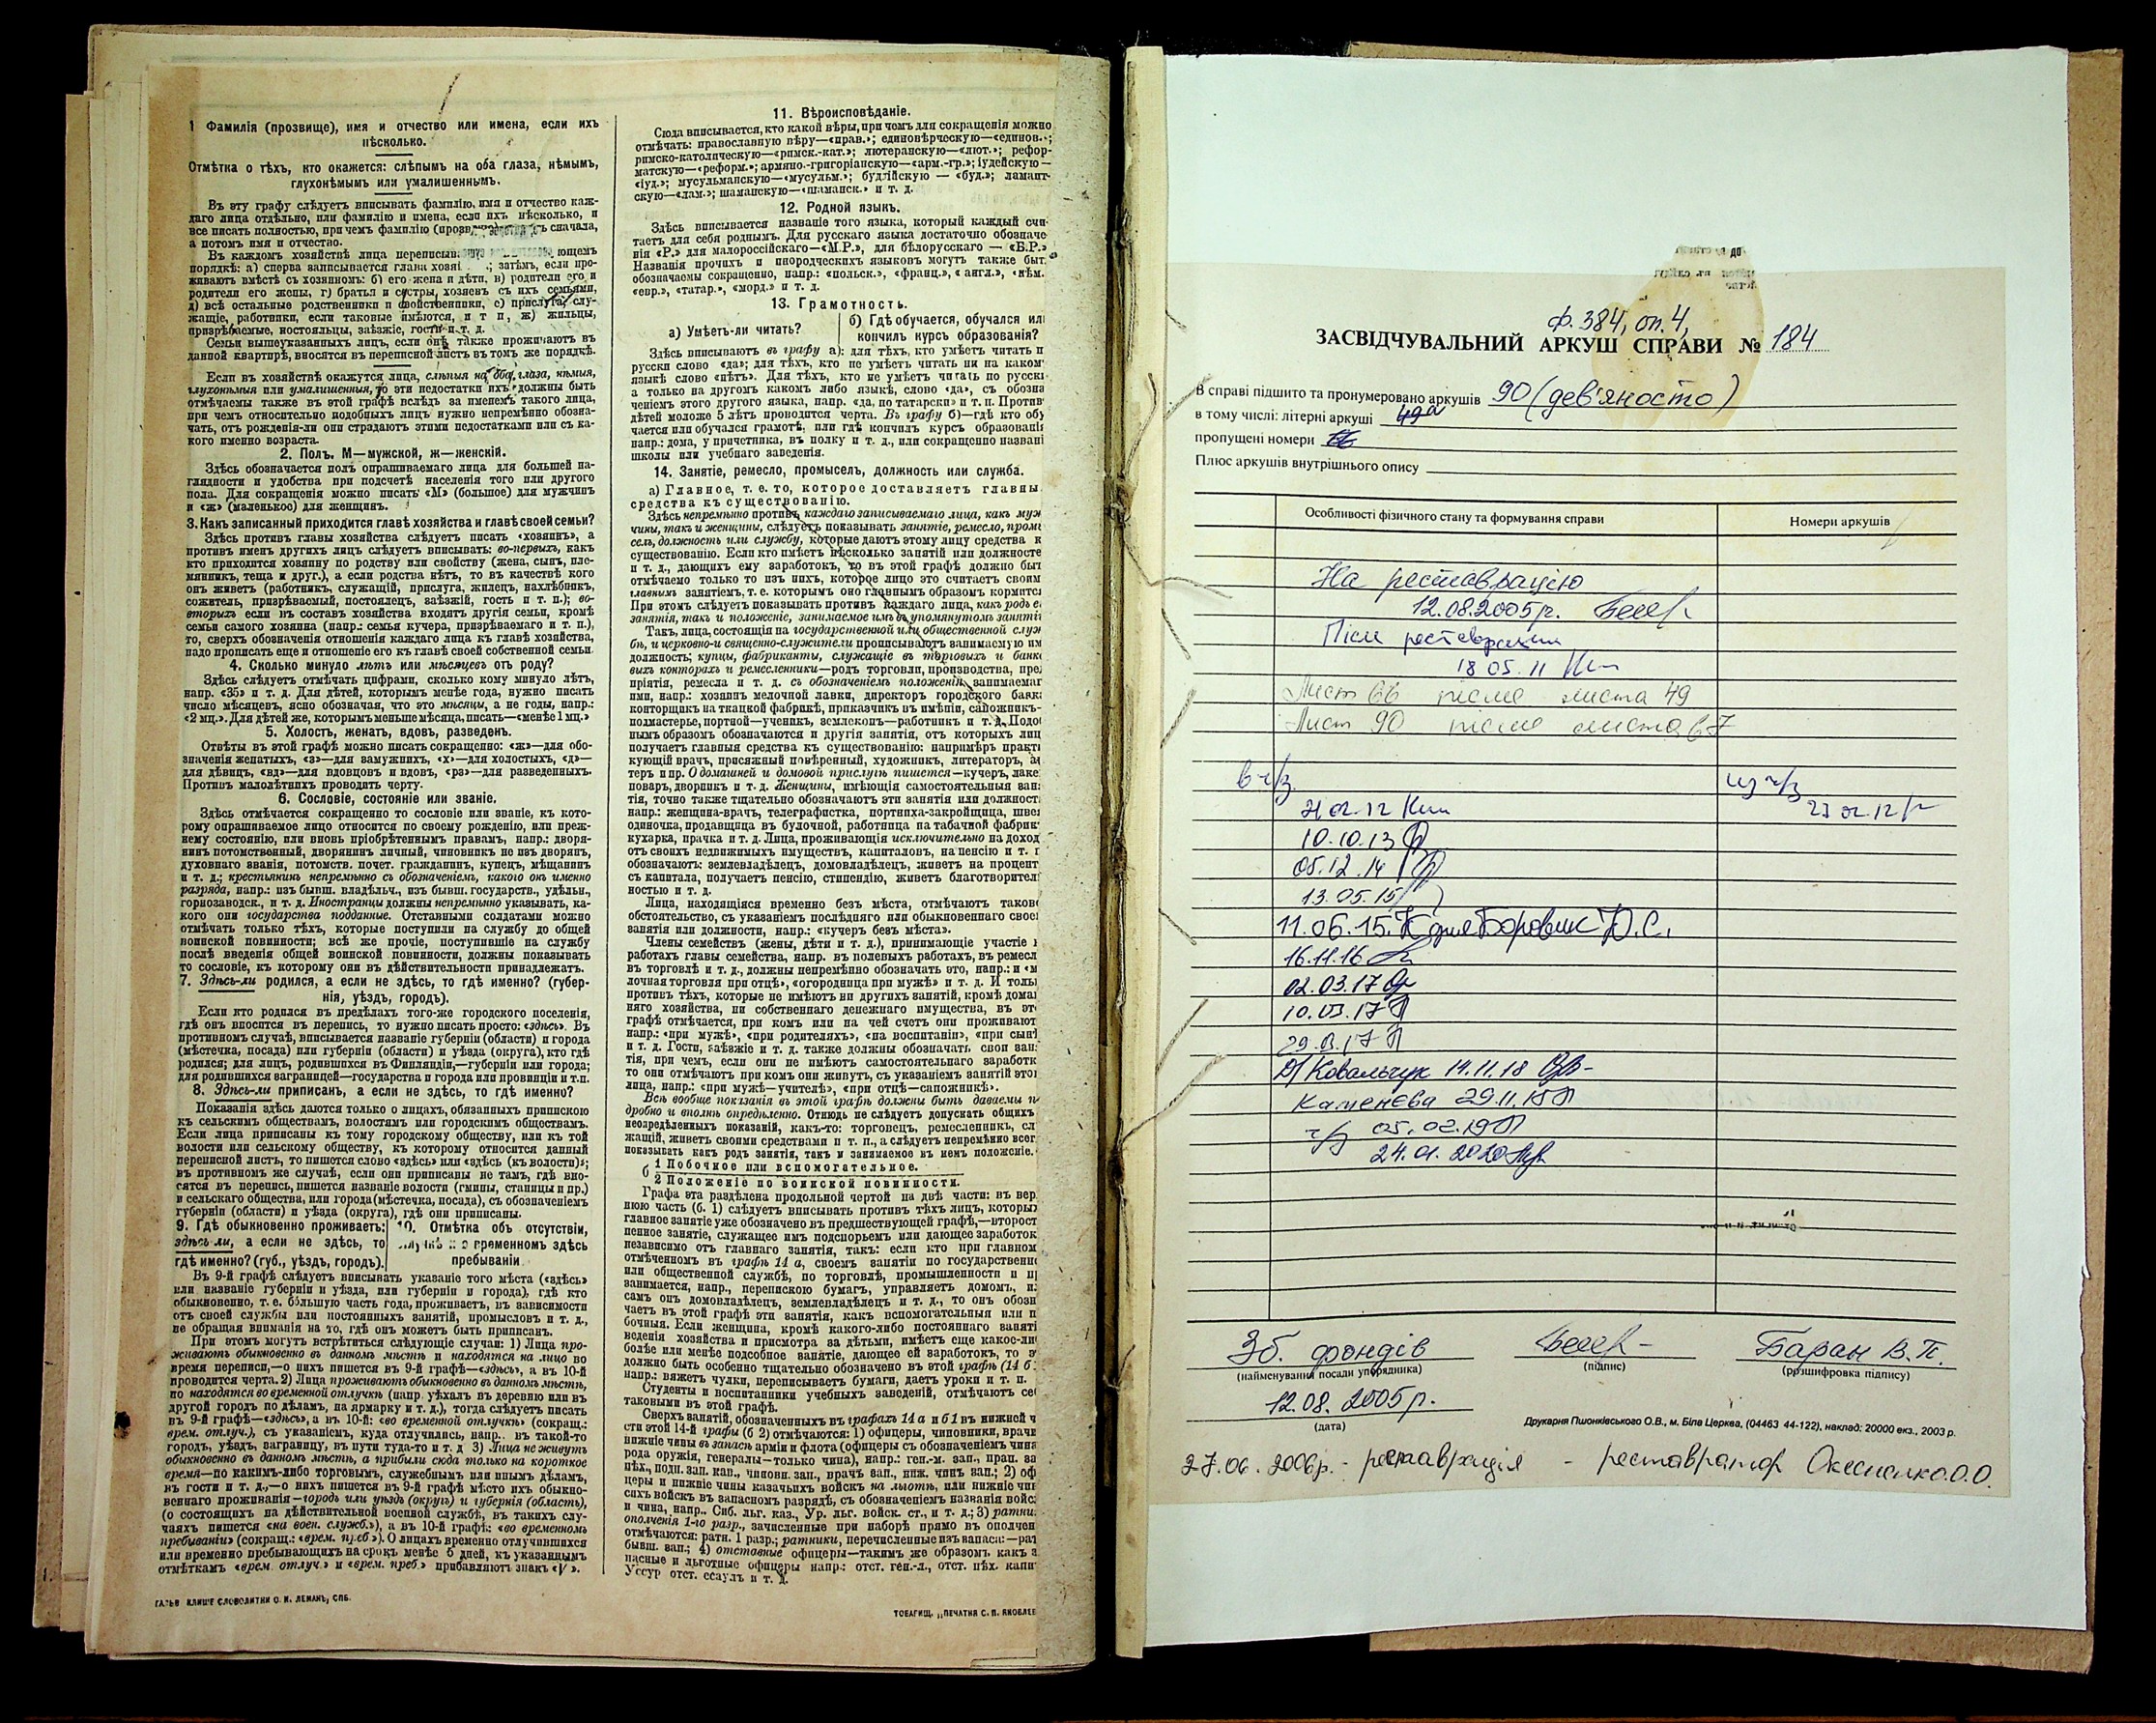 1 Фамилія (прозвище), имя и отчество или имена, если ихъ
нѣсколько.
Отмѣтка о тѣхъ, кто окажется: слѣпымъ на оба глаза, нѣмымъ,
глухонѣмымъ или умалишеннымъ.
Въ эту графу слѣдуетъ вписывать фамилію, имя и отчество каж-
даго лица отдѣльно, или фамилію и имена, если ихъ нѣсколько, и
все писать полностью, при чемъ фамилію сначала,
а потомъ имя и отчество.
Въ каждомъ хозяйствѣ лица ющемъ
порядкѣ: а) сперва записывается глава затѣмъ, если про-
живаютъ вмѣстѣ съ хозяиномъ: б) его жена и дѣти, в) родители его и
родители его жены, г) братья и сестры, хозяевъ съ ихъ семьями,
д) всѣ остальные родственники и свойственники, е) прислуга, слу-
жащіе, работники, если таковые имѣются, и т п, ж) жильцы,
призрѣваемые, постояльцы, заѣзжіе, гости и т. д.
Семьи вышеуказанныхъ лицъ, если онѣ также проживаютъ въ
данной квартирѣ, вносятся въ переписной листъ въ томъ же порядкѣ.
Если въ хозяйствѣ окажутся лица, слѣпыя на оба глаза, нѣмыя,
глухонѣмыя или умалишенныя, то эти недостатки ихъ должны быть
отмѣчаемы также въ этой графѣ вслѣдъ за именемъ такого лица,
при чемъ относительно подобныхъ лицъ нужно непремѣнно обозна-
чать, отъ рожденія-ли они страдаютъ этими недостатками или съ ка-
кого именно возраста.
2. Полъ. М—мужской, ж—женскій.
Здѣсь обозначается полъ опрашиваемаго лица для большей на-
глядности и удобства при подсчетѣ населенія того или другого
пола. Для сокращенія можно писать «М» (большое) для мужчинъ
и «ж» (маленькое) для женщинъ.
3. Какъ записанный приходится главѣ хозяйства и главѣ своей семьи?
Здѣсь противъ главы хозяйства слѣдуетъ писать «хозяинъ», а
противъ именъ другихъ лицъ слѣдуетъ вписывать: во-первыхъ, какъ
кто приходится хозяину по родству или свойству (жена, сынъ, пле-
мянникъ, теща и друг.), а если родства нѣтъ, то въ качествѣ кого
онъ живетъ (работникъ, служащій, прислуга, жилецъ, нахлѣбникъ,
сожитель, призрѣваемый, постоялецъ, заѣзжій, гость и т. п.); во-
вторыхъ если въ составъ хозяйства входятъ другія семьи, кромѣ
семьи самого хозяина (напр.: семья кучера, призрѣваемаго и т. п.),
то, сверхъ обозначенія отношенія каждаго лица къ главѣ хозяйства,
надо прописать еще и отношеніе его къ главѣ своей собственной семьи.
4. Сколько минуло лѣтъ или мѣсяцевъ отъ роду?
Здѣсь слѣдуетъ отмѣчать цифрами, сколько кому минуло лѣтъ,
напр. «35» и т. д. Для дѣтей, которымъ менѣе года, нужно писать
число мѣсяцевъ, ясно обозначая, что это мѣсяцы, а не годы, напр.:
«2 мц.». Для дѣтей же, которымъ меньше мѣсяца, писать—«менѣе 1 мц.»
5. Холостъ, женатъ, вдовъ, разведенъ.
Отвѣты въ этой графѣ можно писать сокращенно: «ж»—для обо-
значенія женатыхъ, «з»—для замужнихъ, «х»—для холостыхъ, «д»—
для дѣвицъ, «вд»—для вдовцовъ и вдовъ, «рз»—для разведенныхъ.
Противъ малолѣтнихъ проводить черту.
6. Сословіе, состояніе или званіе.
Здѣсь отмѣчается сокращенно то сословіе или званіе, къ кото-
рому опрашиваемое лицо относится по своему рожденію, или преж-
нему состоянію, или вновь пріобрѣтеннымъ правамъ, напр.: дворя-
нинъ потомственный, дворянинъ личный, чиновникъ не изъ дворянъ,
духовнаго званія, потомств. почет. гражданинъ, купецъ, мѣщанинъ
и т. д.; крестьянинъ непремѣнно съ обозначеніемъ, какого онъ именно
разряда, напр.: изъ бывш. владѣльч., изъ бывш. государств., удѣльн.,
горнозаводск., и т. д. Иностранцы должны непремѣнно указывать, ка-
кого они государства подданные. Отставными солдатами можно
отмѣчать только тѣхъ, которые поступили на службу до общей
воинской повинности; всѣ же прочіе, поступившіе на службу
послѣ введенія общей воинской повинности, должны показывать
то сословіе, къ которому они въ дѣйствительности принадлежатъ.
7. Здѣсь-ли родился, а если не здѣсь, то гдѣ именно? (губер-
нія, уѣздъ, городъ).
Если кто родился въ предѣлахъ того-же городского поселенія,
гдѣ онъ вносится въ перепись, то нужно писать просто: «здѣсь». Въ
противномъ случаѣ, вписывается названіе губерніи (области) и города
(мѣстечка, посада) или губерніи (области) и уѣзда (округа), кто гдѣ
родился; для лицъ, родившихся въ Финляндіи,—губерніи или города;
для родившихся заграницей—государства и города или провинціи и т.п.
8. Здѣсь-ли приписанъ, а если не здѣсь, то гдѣ именно?
Показанія здѣсь даются только о лицахъ, обязанныхъ припискою
къ сельскимъ обществамъ, волостямъ или городскимъ обществамъ.
Если лица приписаны къ тому городскому обществу, или къ той
волости или сельскому обществу, къ которому относится данный
переписной листъ, то пишется слово «здѣсь» или «здѣсь (къ волости)»;
въ противномъ же случаѣ, если они приписаны не тамъ, гдѣ вно-
сятся въ перепись, пишется названіе волости (гмины, станицы и пр.)
и сельскаго общества, или города (мѣстечка, посада), съ обозначеніемъ
губерніи (области) и уѣзда (округа), гдѣ они приписаны.
9. Гдѣ обыкновенно проживаетъ:
здѣсь ли, а если не здѣсь, то
гдѣ именно? (губ., уѣздъ, городъ).
10. Отмѣтка объ отсутствіи,
временномъ здѣсь
пребываніи
Въ 9-й графѣ слѣдуетъ вписывать указаніе того мѣста («здѣсь»
или названіе губерніи и уѣзда, или губерніи и города), гдѣ кто
обыкновенно, т. е. бо́льшую часть года, проживаетъ, въ зависимости
отъ своей службы или постоянныхъ занятій, промысловъ и т. д.,
не обращая вниманія на то, гдѣ онъ можетъ быть приписанъ.
При этомъ могутъ встрѣтиться слѣдующіе случаи: 1) Лица про-
живаютъ обыкновенно въ данномъ мѣстѣ и находятся на лицо во
время переписи,—о нихъ пишется въ 9-й графѣ—«здѣсь», а въ 10-й
проводится черта. 2) Лица проживаютъ обыкновенно въ данномъ мѣстѣ,
но находятся во временной отлучкѣ (напр уѣхалъ въ деревню или въ
другой городъ по дѣламъ, на ярмарку и т. д.), тогда слѣдуетъ писать
въ 9-й графѣ—«здѣсь», а въ 10-й: «во временной отлучкѣ» (сокращ.:
врем. отлуч.), съ указаніемъ, куда отлучились, напр.. въ такой-то
городъ, уѣздъ, заграницу, въ пути туда-то и т. д 3) Лица не живутъ
обыкновенно въ данномъ мѣстѣ, а прибыли сюда только на короткое
время—по какимъ-либо торговымъ, служебнымъ или инымъ дѣламъ,
въ гости и т. д.,—о нихъ пишется въ 9-й графѣ мѣсто ихъ обыкно-
веннаго проживанія—городъ или уѣздъ (округъ) и губернія (область),
(о состоящихъ на дѣйствительной военной службѣ, въ такихъ слу-
чаяхъ пишется «на воен. служб.»), а въ 10-й графѣ: «во временномъ
пребываніи» (сокращ.: «врем. преб.»). О лицахъ временно отлучившихся
или временно пребывающихъ на срокъ менѣе 5 дней, къ указаннымъ
отмѣткамъ «врем отлуч.» и «врем. преб.» прибавляютъ знакъ «V».
КЛИШЕ СЛОВОЛИТНИ О. И. ЛЕМАНЪ, СПБ.
11. Вѣроисповѣданіе.
Сюда вписывается, кто какой вѣры, при чемъ для сокращенія можно
отмѣчать: православную вѣру—«прав.»; единовѣрческую—«единов.»;
римско-католическую—«римск.-кат.»; лютеранскую—«лют.»; рефор-
матскую—«реформ.»; армяно.-григоріанскую—«арм.-гр.»; іудейскую—
«іуд.»; мусульманскую—«мусульм.»; буддійскую — «буд.»; ламаит-
скую—«лам.»; шаманскую—«шаманск.» и т. д.
12. Родной языкъ.
Здѣсь вписывается названіе того языка, который каждый счи-
таетъ для себя роднымъ. Для русскаго языка достаточно обозначе-
нія «Р.» для малороссійскаго—«М.Р.», для бѣлорусскаго — «Б.Р.»
Названія прочихъ и инородческихъ языковъ могутъ также быт
обозначаемы сокращенно, напр.: «польск.», «франц.», «англ.», «нѣм.
«евр.», «татар.», «морд.» и т. д.
13. Грамотность.
а) Умѣетъ-ли читать?
б) Гдѣ обучается, обучался или
кончилъ курсъ образованія?
Здѣсь вписываютъ въ графу а): для тѣхъ, кто умѣетъ читать п
русски слово «да»; для тѣхъ, кто не умѣетъ читать ни на каком
языкѣ слово «нѣтъ». Для тѣхъ, кто не умѣетъ читать по русски
а только на другомъ какомъ либо языкѣ, слово «да», съ обозна
ченіемъ этого другого языка, напр. «да, по татарски» и т. п. Против
дѣтей моложе 5 лѣтъ проводится черта. Въ графу б)—гдѣ кто обу
чается или обучался грамотѣ, или гдѣ кончилъ курсъ образованія
напр.: дома, у причетника, въ полку и т. д., или сокращенно названі
школы или учебнаго заведенія.
14. Занятіе, ремесло, промыселъ, должность или служба.
а) Главное, т. е. то, которое доставляетъ главны
средства къ существованію.
Здѣсь непремѣнно противъ каждаго записываемаго лица, какъ муж
чины, такъ и женщины, слѣдуетъ показывать занятіе, ремесло, промы
селъ, должность или службу, которые даютъ этому лицу средства к
существованію. Если кто имѣетъ нѣсколько занятій или должносте
и т. д., дающихъ ему заработокъ, то въ этой графѣ должно быт
отмѣчаемо только то изъ нихъ, которое лицо это считаетъ своим
главнымъ занятіемъ, т. е. которымъ оно главнымъ образомъ кормится
При этомъ слѣдуетъ показывать противъ каждаго лица, какъ родъ е
занятія, такъ и положеніе, занимаемое имъ въ упомянутомъ заняті
Такъ, лица, состоящія на государственной или общественной служ
бѣ, и церковно-и священно-служители прописываютъ занимаемую им
должность; купцы, фабриканты, служащіе въ торговыхъ и банко
выхъ конторахъ и ремесленники—родъ торговли, производства, пред
пріятія, ремесла и т. д. съ обозначеніемъ положенія, занимаемаг
ими, напр.: хозяинъ мелочной лавки, директоръ городского банка
конторщикъ на ткацкой фабрикѣ, приказчикъ въ имѣніи, сапожникъ-
подмастерье, портной—ученикъ, землекопъ—работникъ и т. д. Подо
нымъ образомъ обозначаются и другія занятія, отъ которыхъ лиц
получаетъ главныя средства къ существованію: напримѣръ практи
кующій врачъ, присяжный повѣренный, художникъ, литераторъ, а
теръ и пр. О домашней и домовой прислугѣ пишется—кучеръ, лаке
поваръ, дворникъ и т. д. Женщины, имѣющія самостоятельныя зан
тія, точно также тщательно обозначаютъ эти занятія или должност
напр.: женщина-врачъ, телеграфистка, портниха-закройщица, швея
одиночка, продавщица въ булочной, работница на табачной фабрик
кухарка, прачка и т. д. Лица, проживающія исключительно на доход
отъ своихъ недвижимыхъ имуществъ, капиталовъ, на пенсію и т. п
обозначаютъ: землевладѣлецъ, домовладѣлецъ, живетъ на процент
съ капитала, получаетъ пенсію, стипендію, живетъ благотворител
ностью и т. д.
Лица, находящіяся временно безъ мѣста, отмѣчаютъ таково
обстоятельство, съ указаніемъ послѣдняго или обыкновеннаго своег
занятія или должности, напр.: «кучеръ безъ мѣста».
Члены семействъ (жены, дѣти и т. д.), принимающіе участіе
работахъ главы семейства, напр. въ полевыхъ работахъ, въ ремесл
въ торговлѣ и т. д., должны непремѣнно обозначать это, напр.: и «м
лочная торговля при отцѣ», «огородница при мужѣ» и т. д. И тольк
противъ тѣхъ, которые не имѣютъ ни другихъ занятій, кромѣ дома
няго хозяйства, ни собственнаго денежнаго имущества, въ это
графѣ отмѣчается, при комъ или на чей счетъ они проживают
напр.: «при мужѣ», «при родителяхъ», «на воспитаніи», «при сынѣ
и т. д. Гости, заѣзжіе и т. д. также должны обозначать свои зан
тія, при чемъ, если они не имѣютъ самостоятельнаго заработк
то они отмѣчаютъ при комъ они живутъ, съ указаніемъ занятій этог
лица, напр.: «при мужѣ—учителѣ», «при отцѣ—сапожникѣ».
Всѣ вообще показанія въ этой графѣ должны быть даваемы п
дробно и вполнѣ опредѣленно. Отнюдь не слѣдуетъ допускать общихъ
неопредѣленныхъ показаній, какъ-то: торговецъ, ремесленникъ, сл
жащій, живетъ своими средствами и т. п., а слѣдуетъ непремѣнно всег
показывать какъ родъ занятія, такъ и занимаемое въ немъ положеніе.
б 1 Побочное или вспомогательное.
2 Положеніе по воинской повинности.
Графа эта раздѣлена продольной чертой на двѣ части: въ вер
нюю часть (б. 1) слѣдуетъ вписывать противъ тѣхъ лицъ, которых
главное занятіе уже обозначено въ предшествующей графѣ,—второст
пенное занятіе, служащее имъ подспорьемъ или дающее заработок
независимо отъ главнаго занятія, такъ: если кто при главном
отмѣченномъ въ графѣ 14 а, своемъ занятіи по государственн
или общественной службѣ, по торговлѣ, промышленности и п
занимается, напр., перепискою бумагъ, управляетъ домомъ, и
самъ онъ домовладѣлецъ, землевладѣлецъ и т. д., то онъ обозн
чаетъ въ этой графѣ эти занятія, какъ вспомогательныя или п
бочныя. Если женщина, кромѣ какого-либо постояннаго заняті
веденія хозяйства и присмотра за дѣтьми, имѣетъ еще какое-ли
болѣе или менѣе подсобное занятіе, дающее ей заработокъ, то э
должно быть особенно тщательно обозначено въ этой графѣ (14 б
напр.: вяжетъ чулки, переписываетъ бумаги, даетъ уроки и т. п.
Студенты и воспитанники учебныхъ заведеній, отмѣчаютъ се
таковыми въ этой графѣ.
Сверхъ занятій, обозначенныхъ въ графахъ 14 а и б 1 въ нижней ч
сти этой 14-й графы (б 2) отмѣчаются: 1) офицеры, чиновники, врачи
нижніе чины въ запасѣ арміи и флота (офицеры съ обозначеніемъ чина
рода оружія, генералы—только чина), напр.: ген.-м. зап., прап. за
пѣх., подп. зап. кав., чиновн. зап., врачъ зап., ниж. чинъ зап.; 2) оф
церы и нижніе чины казачьихъ войскъ на льготѣ, или нижніе чин
сихъ войскъ въ запасномъ разрядѣ, съ обозначеніемъ названія войс
и чина, напр., Сиб. льг. каз., Ур. льг. войск. ст., и т. д.; 3) ратни
ополченія 1-го разр., зачисленные при наборѣ прямо въ ополчен
отмѣчаются: ратн. 1 разр.; ратники, перечисленные изъ запаса:—рат
бывш. зап.; 4) отставные офицеры—такимъ же образомъ какъ з
пасные и льготные офицеры напр.: отст. ген.-л., отст. пѣх. капи
Уссур отст. есаулъ и т. д.
ТОВАРИЩ. „ПЕЧАТНЯ С. П. ЯКОВЛЕВ
ф. 384, оп. 4,
ЗАСВІДЧУВАЛЬНИЙ АРКУШ СПРАВИ № 184
В справі підшито та пронумеровано аркушів 90 (дев'яносто)
в тому числі: літерні аркуші 49а
пропущені номери
Плюс аркушів внутрішнього опису
Особливості фізичного стану та формування справи
Номери аркушів
На реставрацію
12.08.2005р.
Після реставрации
18 05. 11
Лист 66 после листа 49
Лист 90 после листа 67
в ч/з
из ч/з
21 02. 12
23 02. 12
10. 10. 13
05. 12. 14
13. 05. 15
11. 06. 15. Боровик Ю. С.
16.11.16
02. 03. 17
10. 03. 17
29. 03. 17
Ковальчук 14.11.18
Каменєва 29.11.18
ч/з 05. 02. 19
24. 01. 2020
Зб. фондів
Баран В. П.
(найменування посади упорядника)
(підпис)
(розшифровка підпису)
12.08. 2005р.
(дата)
Друкарня Пшонківського О.В., м. Біла Церква, (04463 44-122), наклад: 20000 екз., 2003 р.
27.06. 2006р. - реставрація - реставратор О.О.